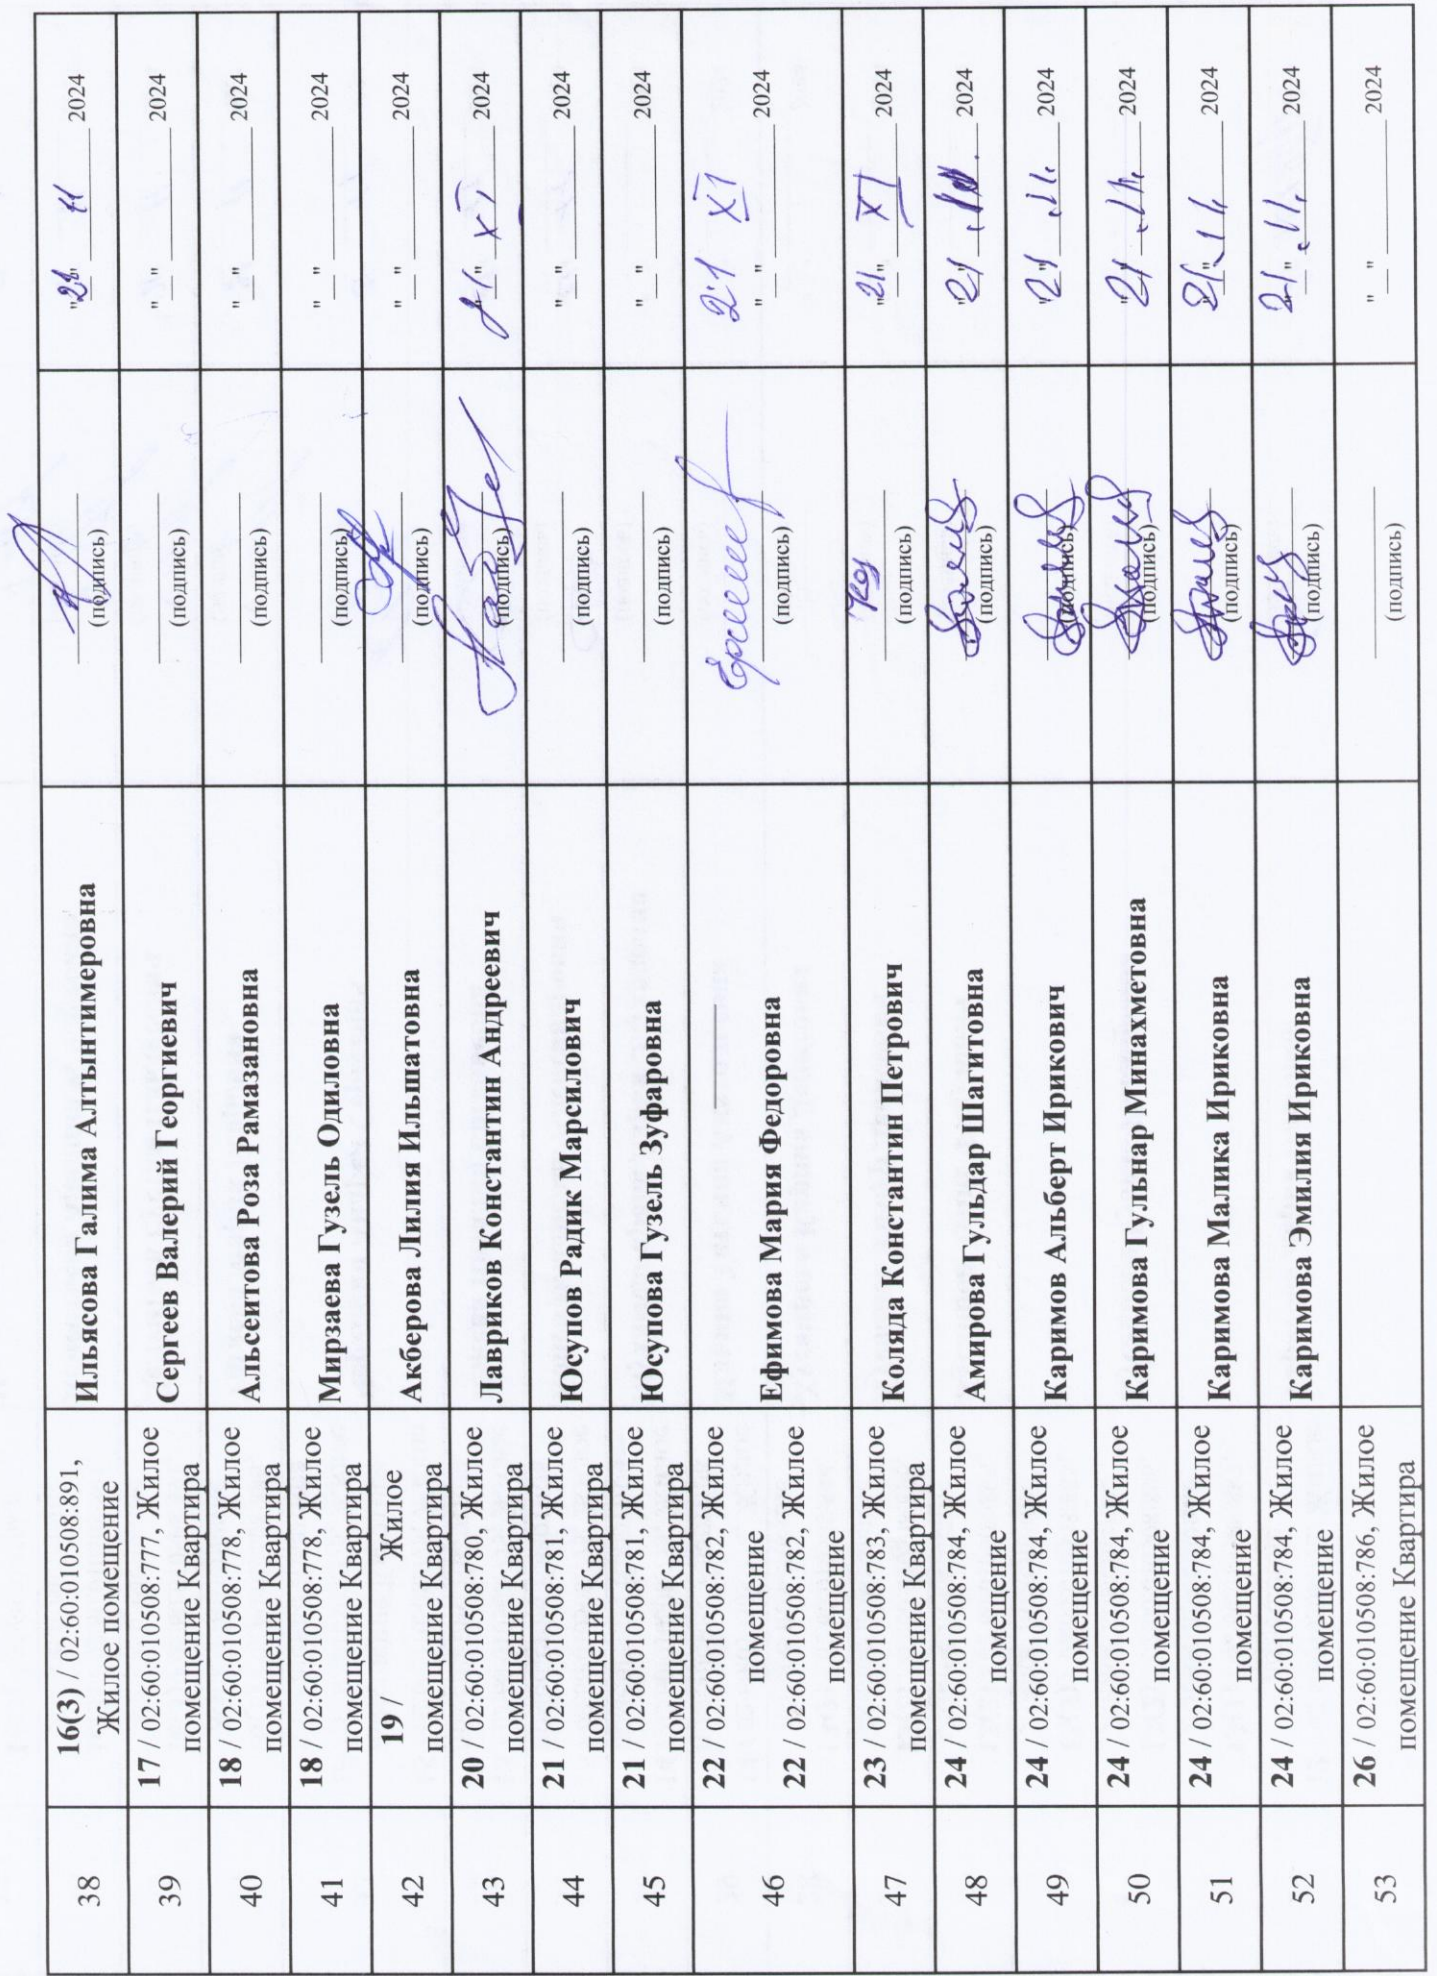 38
16(3) / 02:60:010508:891,
Жилое помещение
Ильясова Галима Алтынтимеровна
(подпись)
"21" 11 2024
39
17 / 02:60:010508:777, Жилое
помещение Квартира
Сергеев Валерий Георгиевич
(подпись)
"__" 2024
40
18 / 02:60:010508:778, Жилое
помещение Квартира
Альсеитова Роза Рамазановна
(подпись)
"__" 2024
41
18 / 02:60:010508:778, Жилое
помещение Квартира
Мирзаева Гузель Одиловна
(подпись)
"__" 2024
42
19 / Жилое
помещение Квартира
Акберова Лилия Ильшатовна
(подпись)
"__" 2024
43
20 / 02:60:010508:780, Жилое
помещение Квартира
Лавриков Константин Андреевич
(подпись)
"21" XI 2024
44
21 / 02:60:010508:781, Жилое
помещение Квартира
Юсупов Радик Марсилович
(подпись)
"__" 2024
45
21 / 02:60:010508:781, Жилое
помещение Квартира
Юсупова Гузель Зуфаровна
(подпись)
"__" 2024
46
22 / 02:60:010508:782, Жилое
помещение
22 / 02:60:010508:782, Жилое
помещение
Ефимова Мария Федоровна
(подпись)
21 XI
"__" 2024
47
23 / 02:60:010508:783, Жилое
помещение Квартира
Коляда Константин Петрович
(подпись)
"21" XI 2024
48
24 / 02:60:010508:784, Жилое
помещение
Амирова Гульдар Шагитовна
(подпись)
"21" 2024
49
24 / 02:60:010508:784, Жилое
помещение
Каримов Альберт Ирикович
(подпись)
"21" .11. 2024
50
24 / 02:60:010508:784, Жилое
помещение
Каримова Гульнар Минахметовна
(подпись)
"21" .11. 2024
51
24 / 02:60:010508:784, Жилое
помещение
Каримова Малика Ириковна
(подпись)
"21" .11. 2024
52
24 / 02:60:010508:784, Жилое
помещение
Каримова Эмилия Ириковна
(подпись)
"21" .11. 2024
53
26 / 02:60:010508:786, Жилое
помещение Квартира
(подпись)
"__" 2024